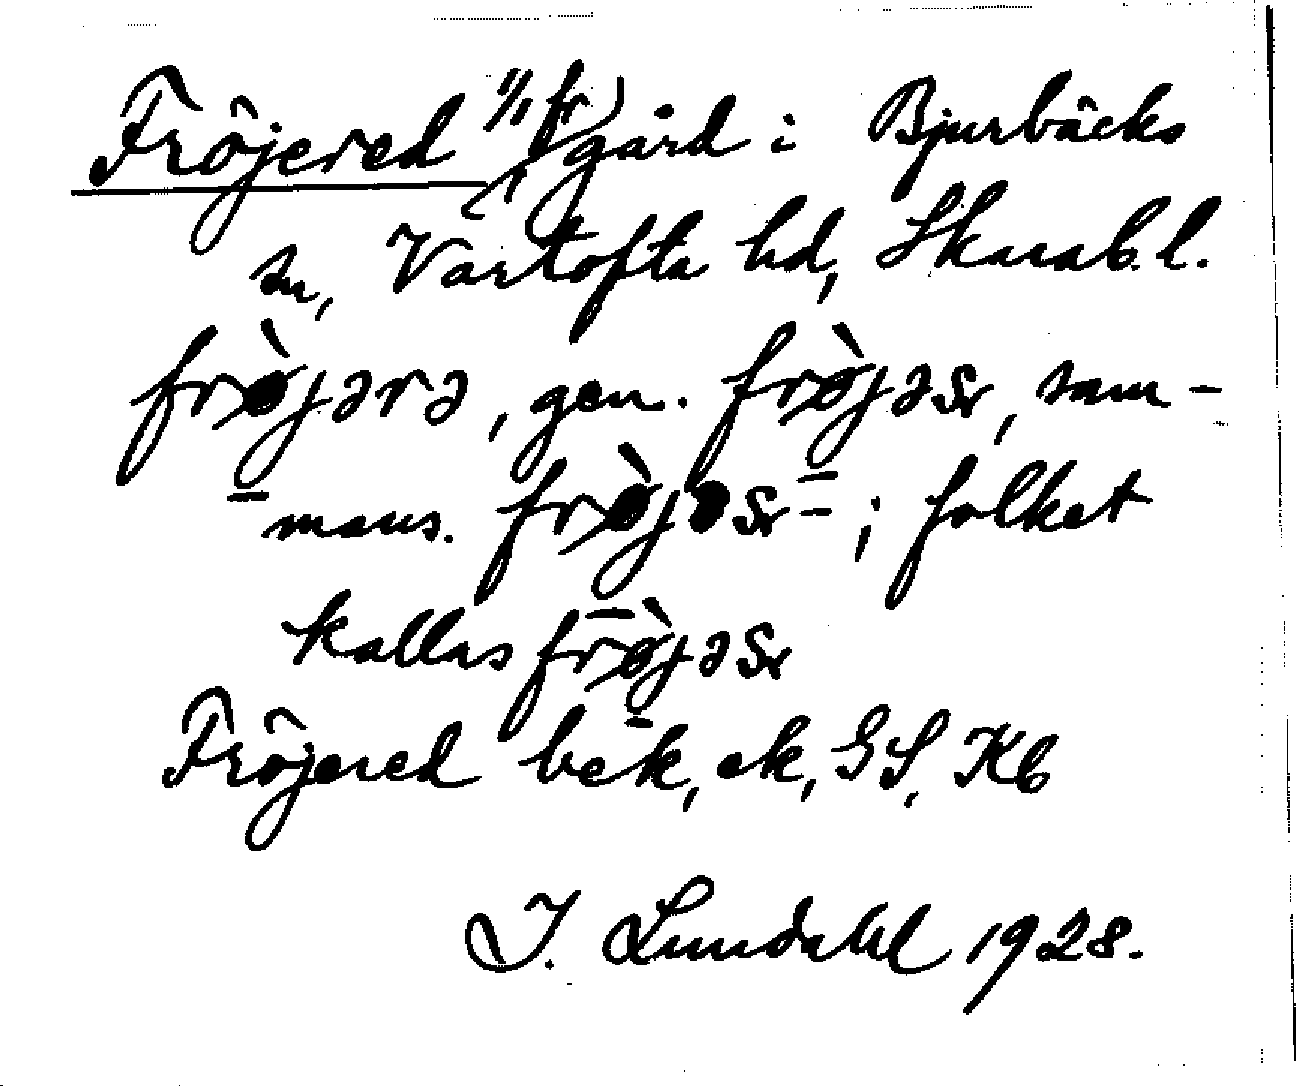 Fröjered 1/1 fr) gård i Bjurbäcks
sn, Vartofta hd, Skarab. l.
frø̀jərə, gen. frø̀jəsr, sam-
mans. frø̀jəsr-; folket
kallas frø̀jəsr
Fröjered bek, ek, GS, Kb
I. Lundahl 1928.